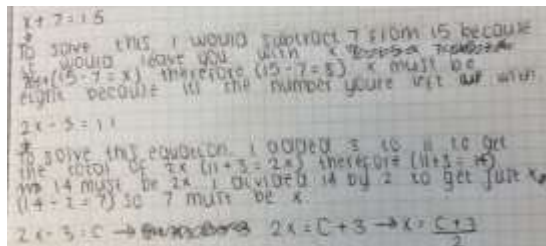 x + 7 = 15
To solve this I would subtract 7 from 15 because
it would leave you with x
(15 - 7 = x) therefore (15 - 7 = 8) x must be
eight because its the number youre left with
2x - 3 = 11
To solve this equation I added 3 to 11 to get
the total of 2x (11 + 3 = 2x) therefore (11 + 3 = 14)
14 must be 2x I divided 14 by 2 to get just x
(14 ÷ 2 = 7) so 7 must be x
2x - 3 = C → 2x = C + 3 → x = C + 3
2